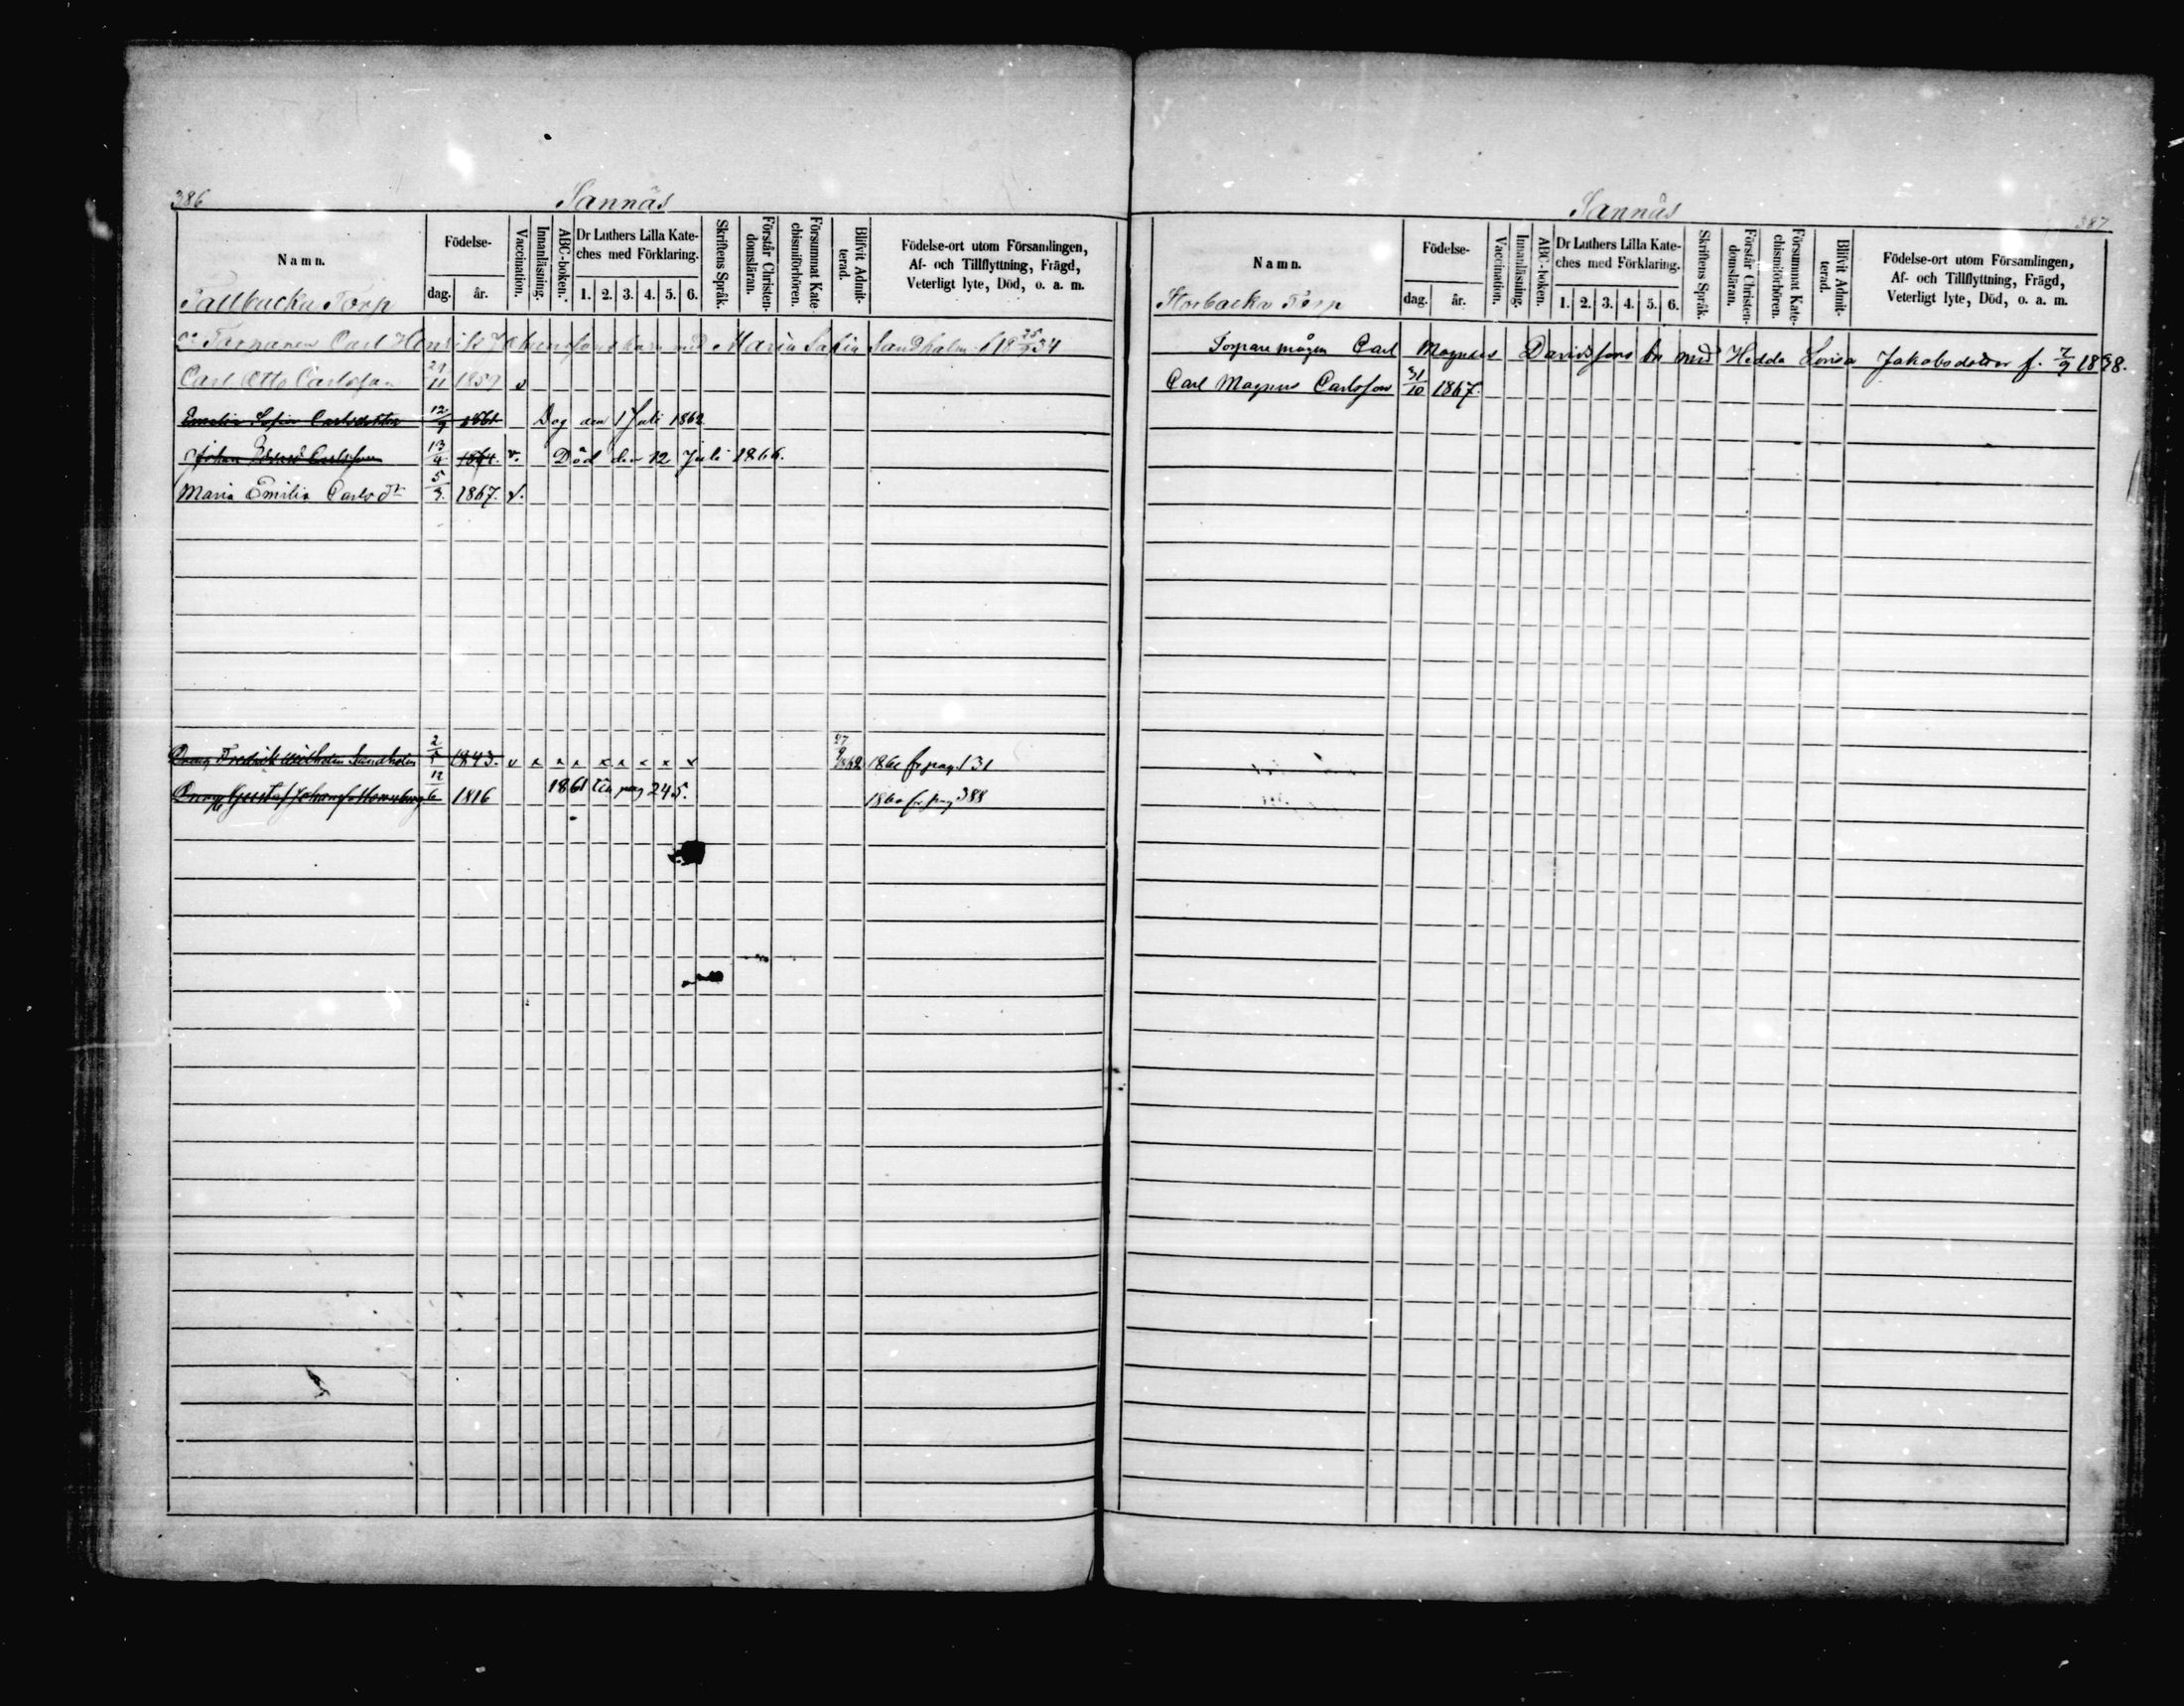 386
Sannäs
Namn.
Födelse-
dag. år.
Vaccination.
Innanläsning.
ABC-boken.
Dr Luthers Lilla Kate-
ches med Förklaring.
1. 2. 3. 4. 5. 6.
Skriftens Språk.
Förstår Christen-
domsläran.
Försummat Kate-
chismiförhören.
Blifvit Admit-
terad.
Födelse-ort utom Församlingen,
Af- och Tillflyttning, Frägd,
Veterligt lyte, Död, o. a. m.
Tallbacka Torp
Torparen Carl Henrik Johanssons barn med Maria Sofia Sandholm f 18 25/5 34
Carl Otto Carlsson 29/11 1859 v
Emelia Sofia Carlsdotter 12/9 1861 Dog den 1 Juli 1862
Johan Carlsson 13/4 1864. v. Död den 12 Juli 1866.
Maria Emilia Carlsdr 5/3. 1867. v.
Dräng Fredrik Wilhelm Sandholm 2/5 1843. v x x x x x x x x 27/9 1862 1861 fr pag. 131
Dräng Gustaf Johansson 12/6 1816 1861 till pag 245. 1860 fr pag 388
Sannäs
387
Namn.
Födelse-
dag. år.
Vaccination.
Innanläsning.
ABC-boken.
Dr Luthers Lilla Kate-
ches med Förklaring.
1. 2. 3. 4. 5. 6.
Skriftens Språk.
Förstår Christen-
domsläran.
Försummat Kate-
chismiförhören.
Blifvit Admit-
terad.
Födelse-ort utom Församlingen,
Af- och Tillflyttning, Frägd,
Veterligt lyte, Död, o. a. m.
Storbacka Torp
Torpare mågen Carl Magnus Davidssons bn med Hedda Lovisa Jakobsdotter f. 7/9 1838.
Carl Magnus Carlsson 31/10 1867.